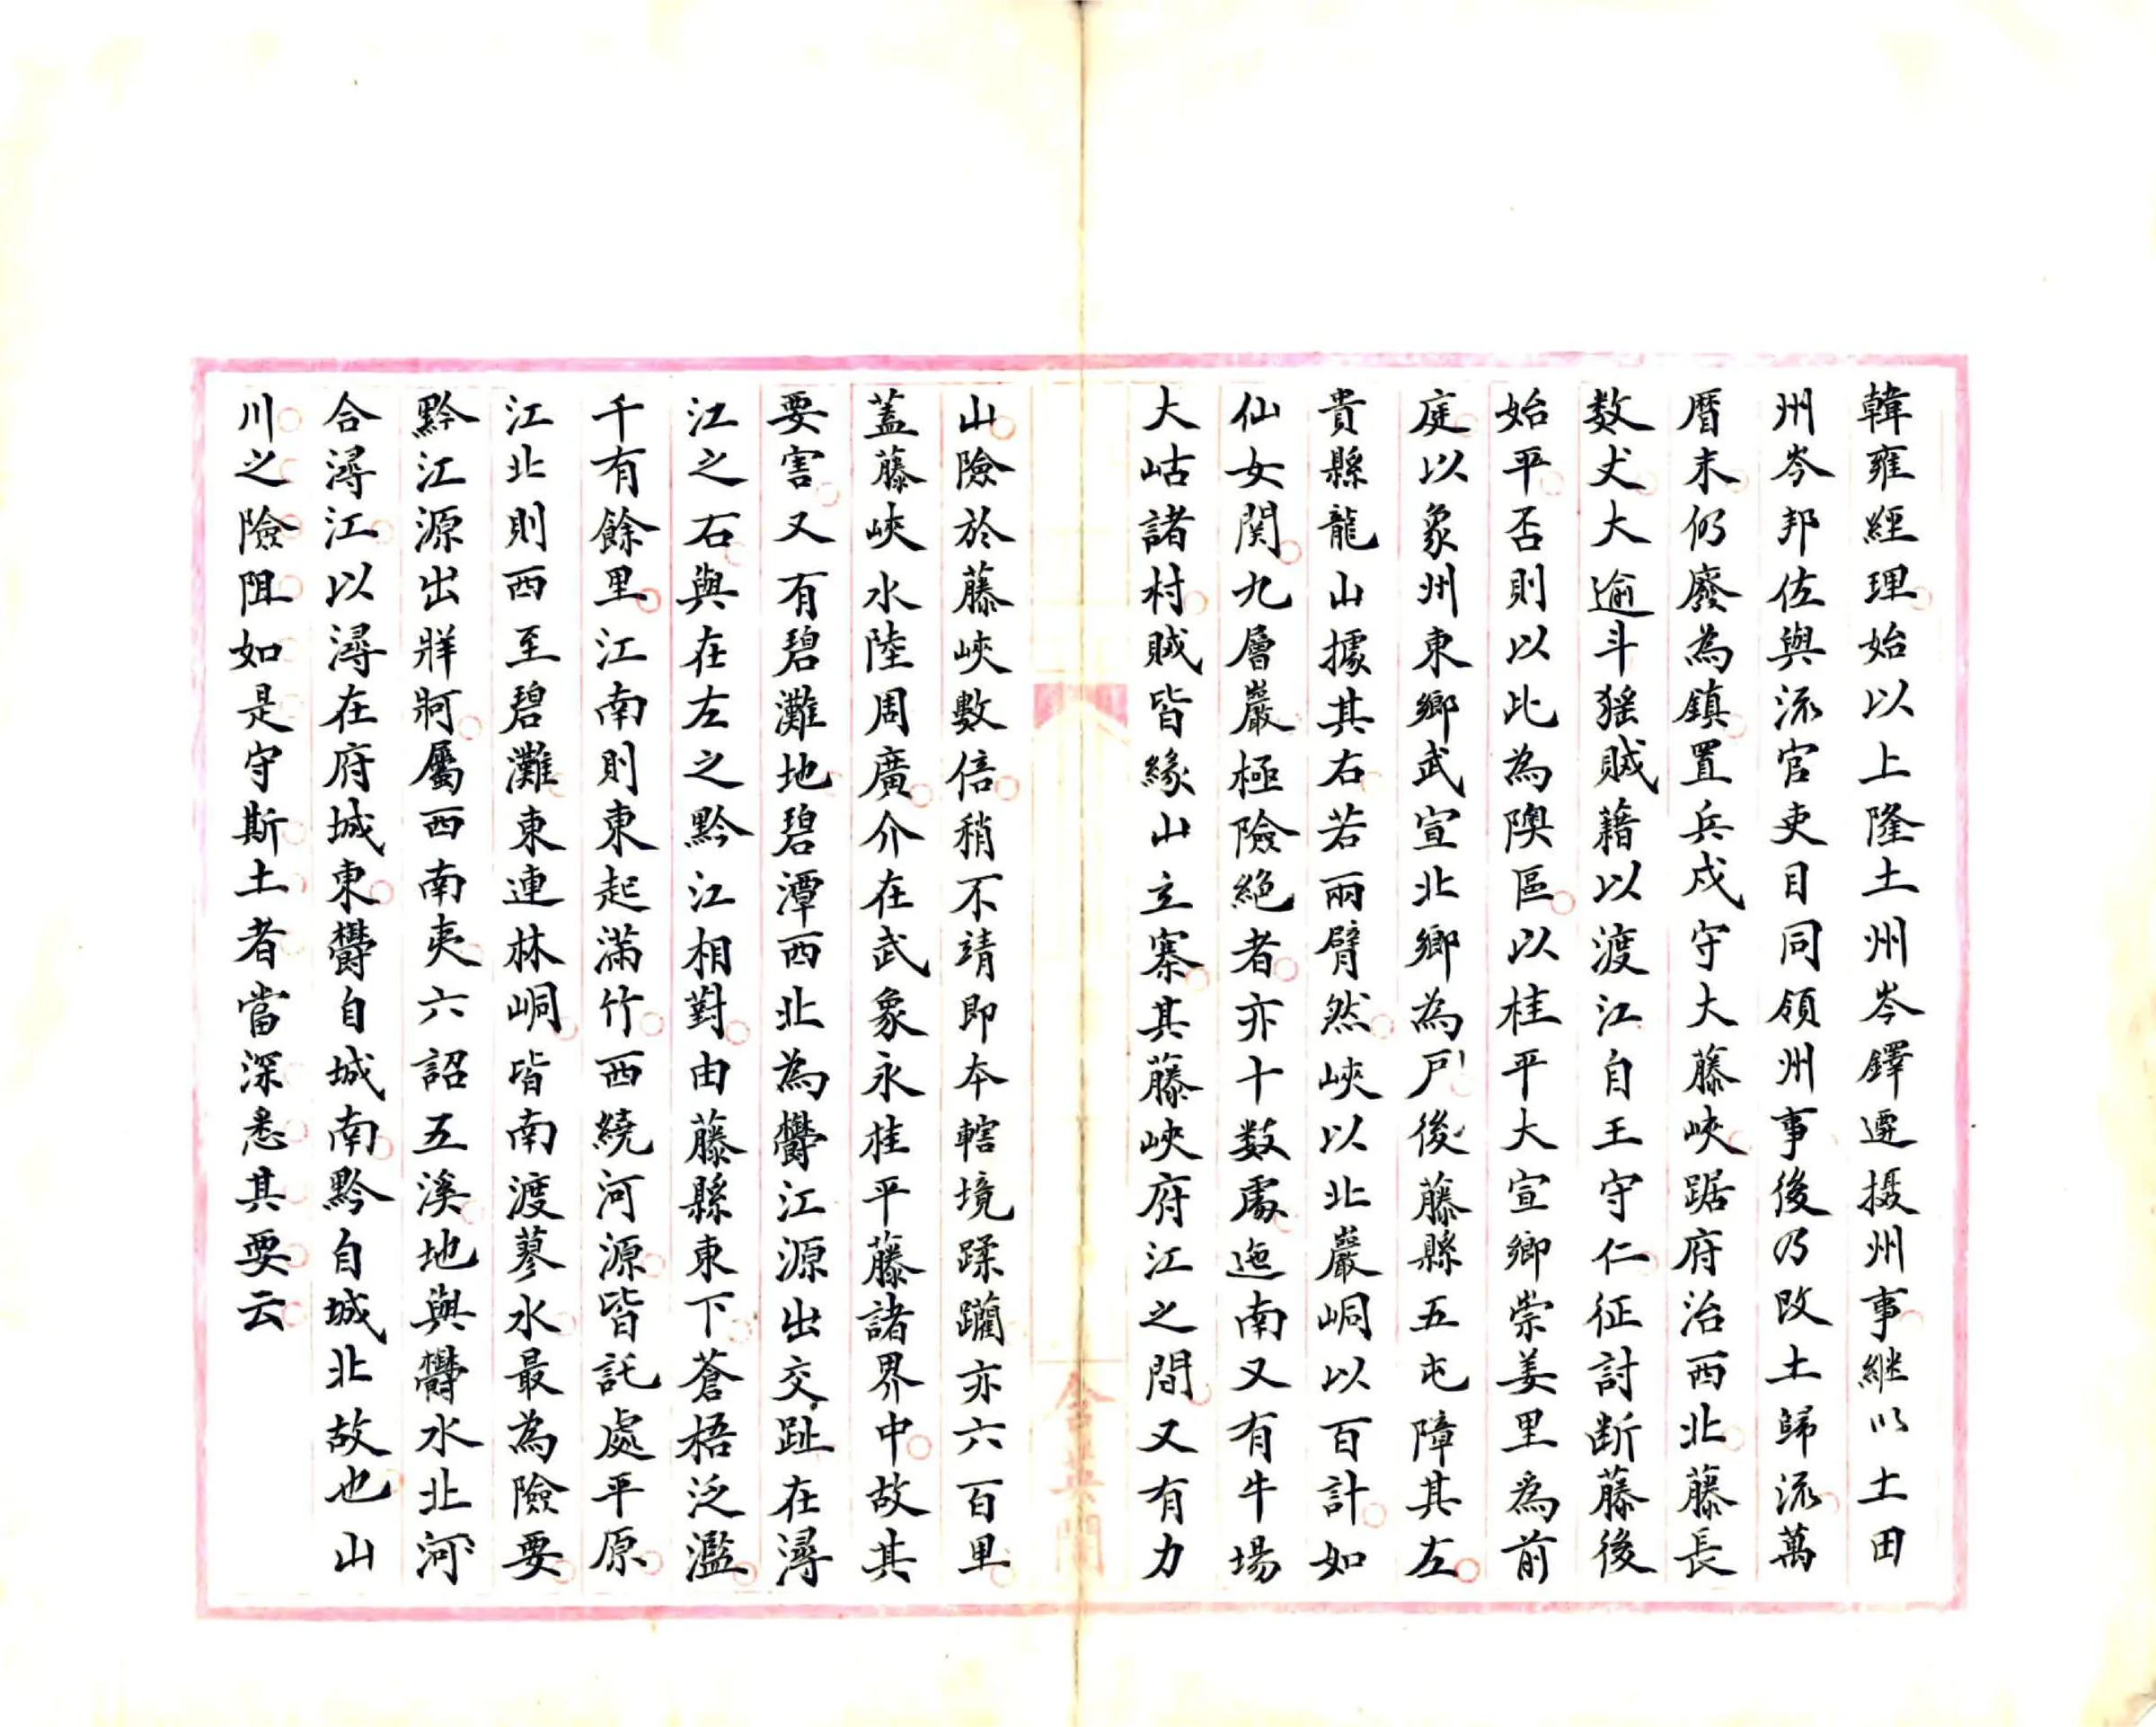 韓雍經理始以上隆土州岑鐸遷攝州事継以土田
州岑邦佐與流官吏目同領州事後乃改土歸流萬
曆末仍廢為鎮置兵戍守大藤峽踞府治西北藤長
数丈大逾斗猺賊藉以渡江自王守仁征討断藤後
始平否則以比為隩區以桂平大宣鄉崇姜里為前
庭以象州東鄉武宣北鄉為戸後藤縣五屯障其左
貴縣龍山據其右若兩臂然峽以北巖峒以百計如
仙女関九層巖極險絕者亦十数處迤南又有牛場
大岵諸村賊皆緣山立寨其藤峽府江之間又有力
山險於藤峽數倍稍不靖即本轄境蹂躪亦六百里
蓋藤峽水陸周廣介在武象永桂平藤諸界中故其
要害又有碧灘地碧潭西北為欝江源出交趾在潯
江之右與在左之黔江相對由藤縣東下蒼梧泛濫
千有餘里江南則東起滿竹西繞河源皆託處平原
江北則西至碧灘東連林峒皆南渡蓼水最為險要
黔江源出牂牁屬西南夷六詔五溪地與欝水北河
合潯江以潯在府城東欝自城南黔自城北故也山
川之險阻如是守斯土者當深悉其要云
含英閣